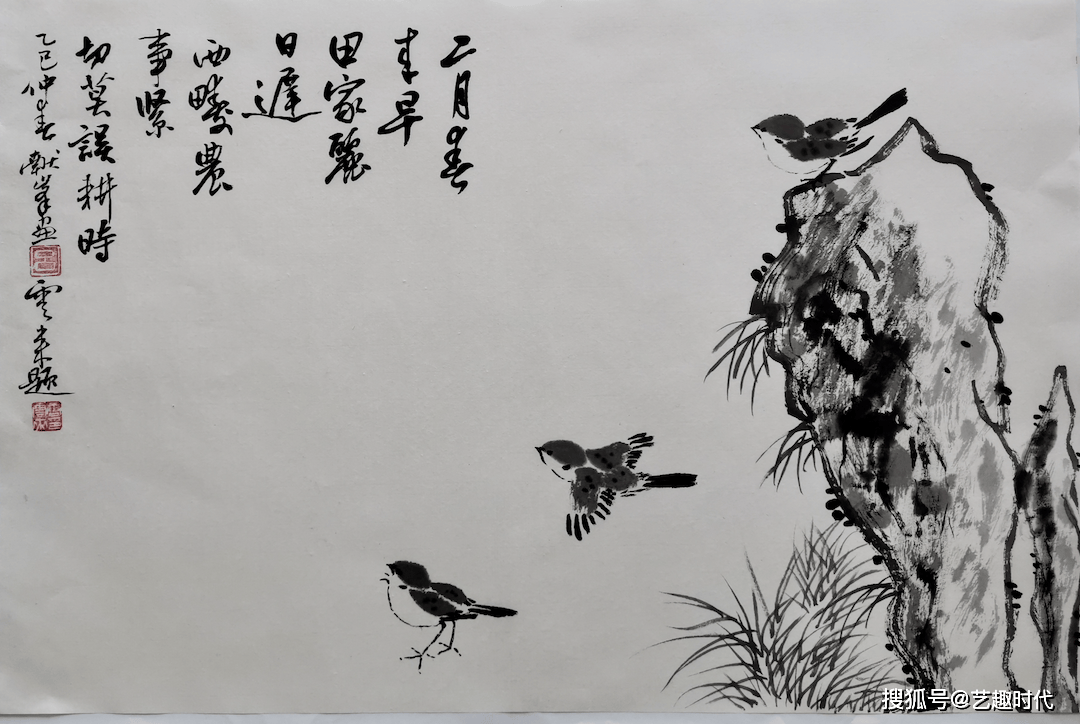 二月春
来早
田家丽
日遲
西畴農
事緊
切莫誤耕時
乙巳仲春 献峯画
雲来题
搜狐号@艺趣时代